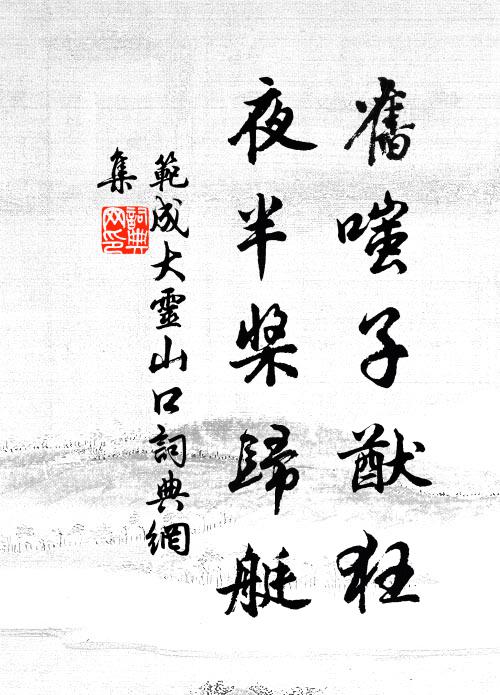 舊嗤子猷狂
夜半槳歸艇
範成大靈山口詞典網
集
詞典
网印